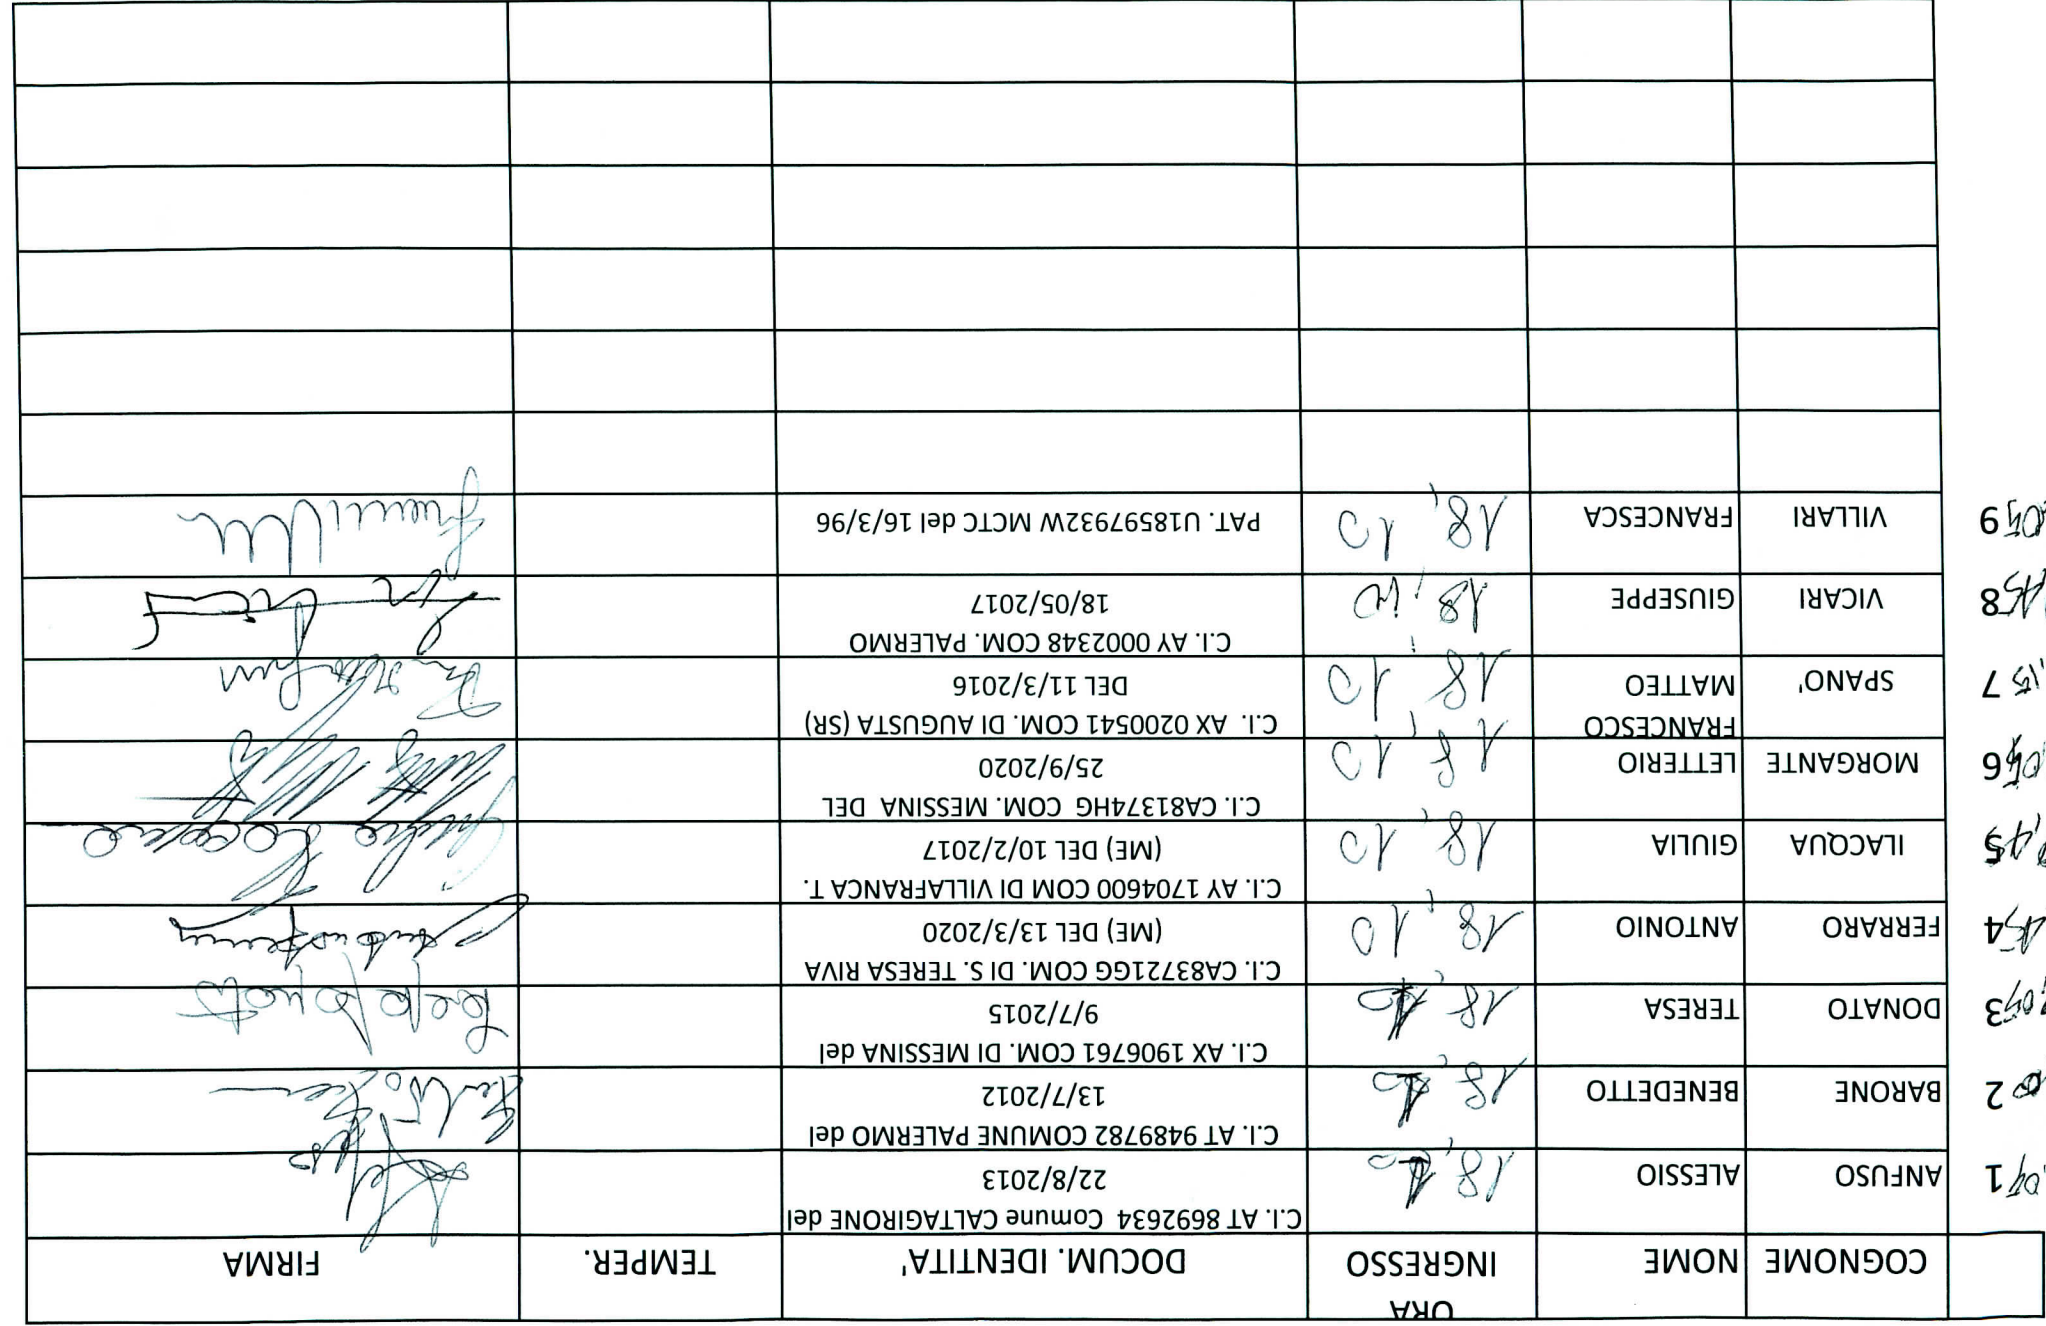 ORA
COGNOME NOME INGRESSO DOCUM. IDENTITA' TEMPER. FIRMA
1 ANFUSO ALESSIO 18,10 C.I. AT 8692634 Comune CALTAGIRONE del
22/8/2013
2 BARONE BENEDETTO 18,10 C.I. AT 9489782 COMUNE PALERMO del
13/7/2012
3 DONATO TERESA 18,10 C.I. AX 1906761 COM. DI MESSINA del
9/7/2015
4 FERRARO ANTONIO 18,10 C.I. CA83721GG COM. DI S. TERESA RIVA
(ME) DEL 13/3/2020
5 ILACQUA GIULIA 18,10 C.I. AY 1704600 COM DI VILLAFRANCA T.
(ME) DEL 10/2/2017
6 MORGANTE LETTERIO 18,10 C.I. CA81374HG COM. MESSINA DEL
25/9/2020
7 SPANO' FRANCESCO 18,10 C.I. AX 0200541 COM. DI AUGUSTA (SR)
MATTEO DEL 11/3/2016
8 VICARI GIUSEPPE 18,10 C.I. AY 0002348 COM. PALERMO
18/05/2017
9 VILLARI FRANCESCA 18,10 PAT. U18597932W MCTC del 16/3/96